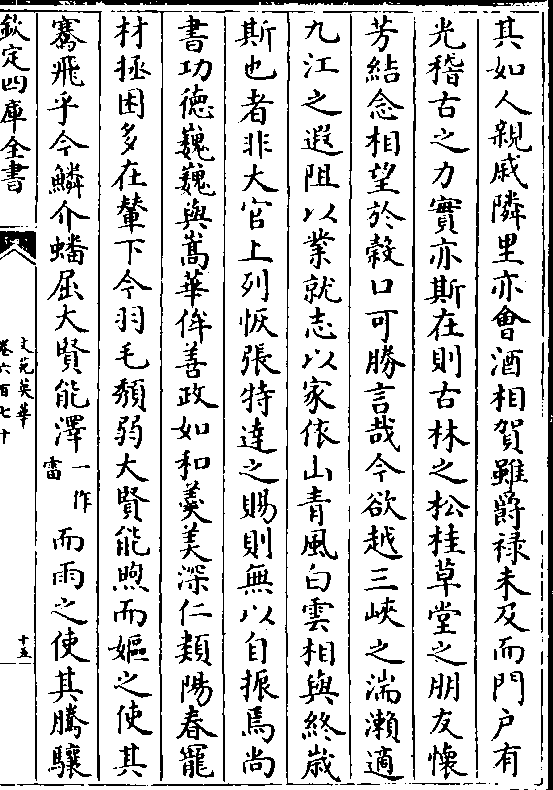 其如人親戚隣里亦會酒相賀雖爵禄未及而門户有
光稽古之力實亦斯在則古林之松桂草堂之朋友懷
芳結念相望於榖口可勝言哉今欲越三峽之湍瀨適
九江之遐阻以業就志以家依山青風白雲相與終歳
斯也者非大官上列恢張特達之賜則無以自振焉尚
書功徳巍巍與嵩華侔善政如和羹美深仁類陽春寵
材拯困多在輦下今羽毛頽弱大賢能煦而嫗之使其
騫飛乎今鱗介蟠屈大賢能澤一作雷而雨之使其騰驤
欽定四庫全書
文苑英華
卷六百七十
十五